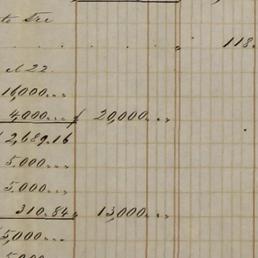 to Tre
118.
16,000...
4,000... 20,000...
2,689.16
5,000...
5,000...
310.84 13,000...
5,000...
5,000...